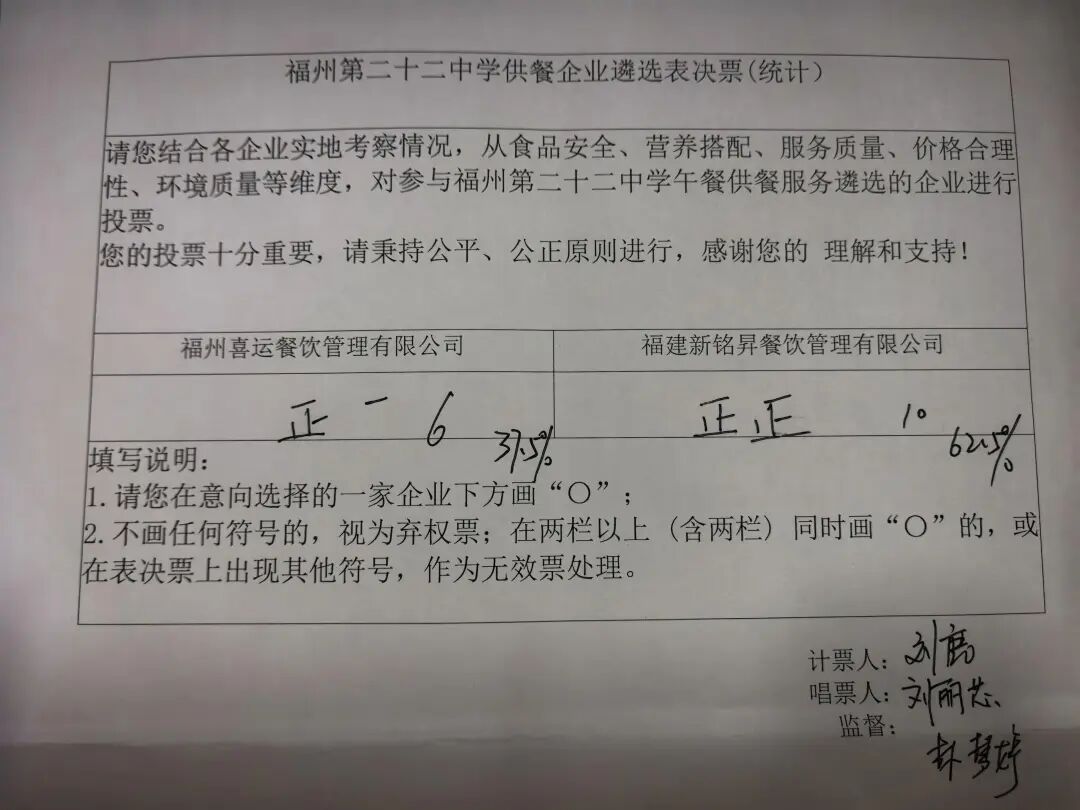 福州第二十二中学供餐企业遴选表决票(统计)
请您结合各企业实地考察情况，从食品安全、营养搭配、服务质量、价格合理
性、环境质量等维度，对参与福州第二十二中学午餐供餐服务遴选的企业进行
投票。
您的投票十分重要，请秉持公平、公正原则进行，感谢您的 理解和支持！
福州喜运餐饮管理有限公司
福建新铭昇餐饮管理有限公司
正 一 6 37.5%
正 正 10 62.5%
填写说明：
1. 请您在意向选择的一家企业下方画“〇”；
2. 不画任何符号的，视为弃权票；在两栏以上 (含两栏) 同时画“〇”的，或
在表决票上出现其他符号，作为无效票处理。
计票人：刘
唱票人：刘丽芯
监督：